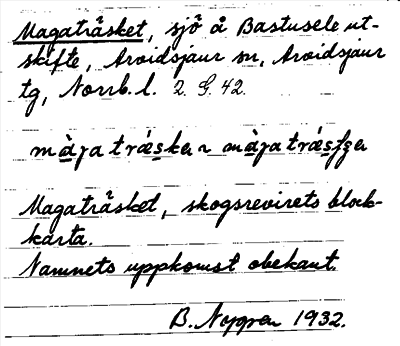 Magaträsket, sjö å Bastusele ut-
skifte, Arvidsjaur sn, Arvidsjaur
tg, Norrb. l. 2. G. 42.
màɡa tráskɐ ~ màɡa trásʃɡɐr
Magaträsket, skogsrevirets block-
karta.
Namnets uppkomst obekant.
B. Nygren 1932.